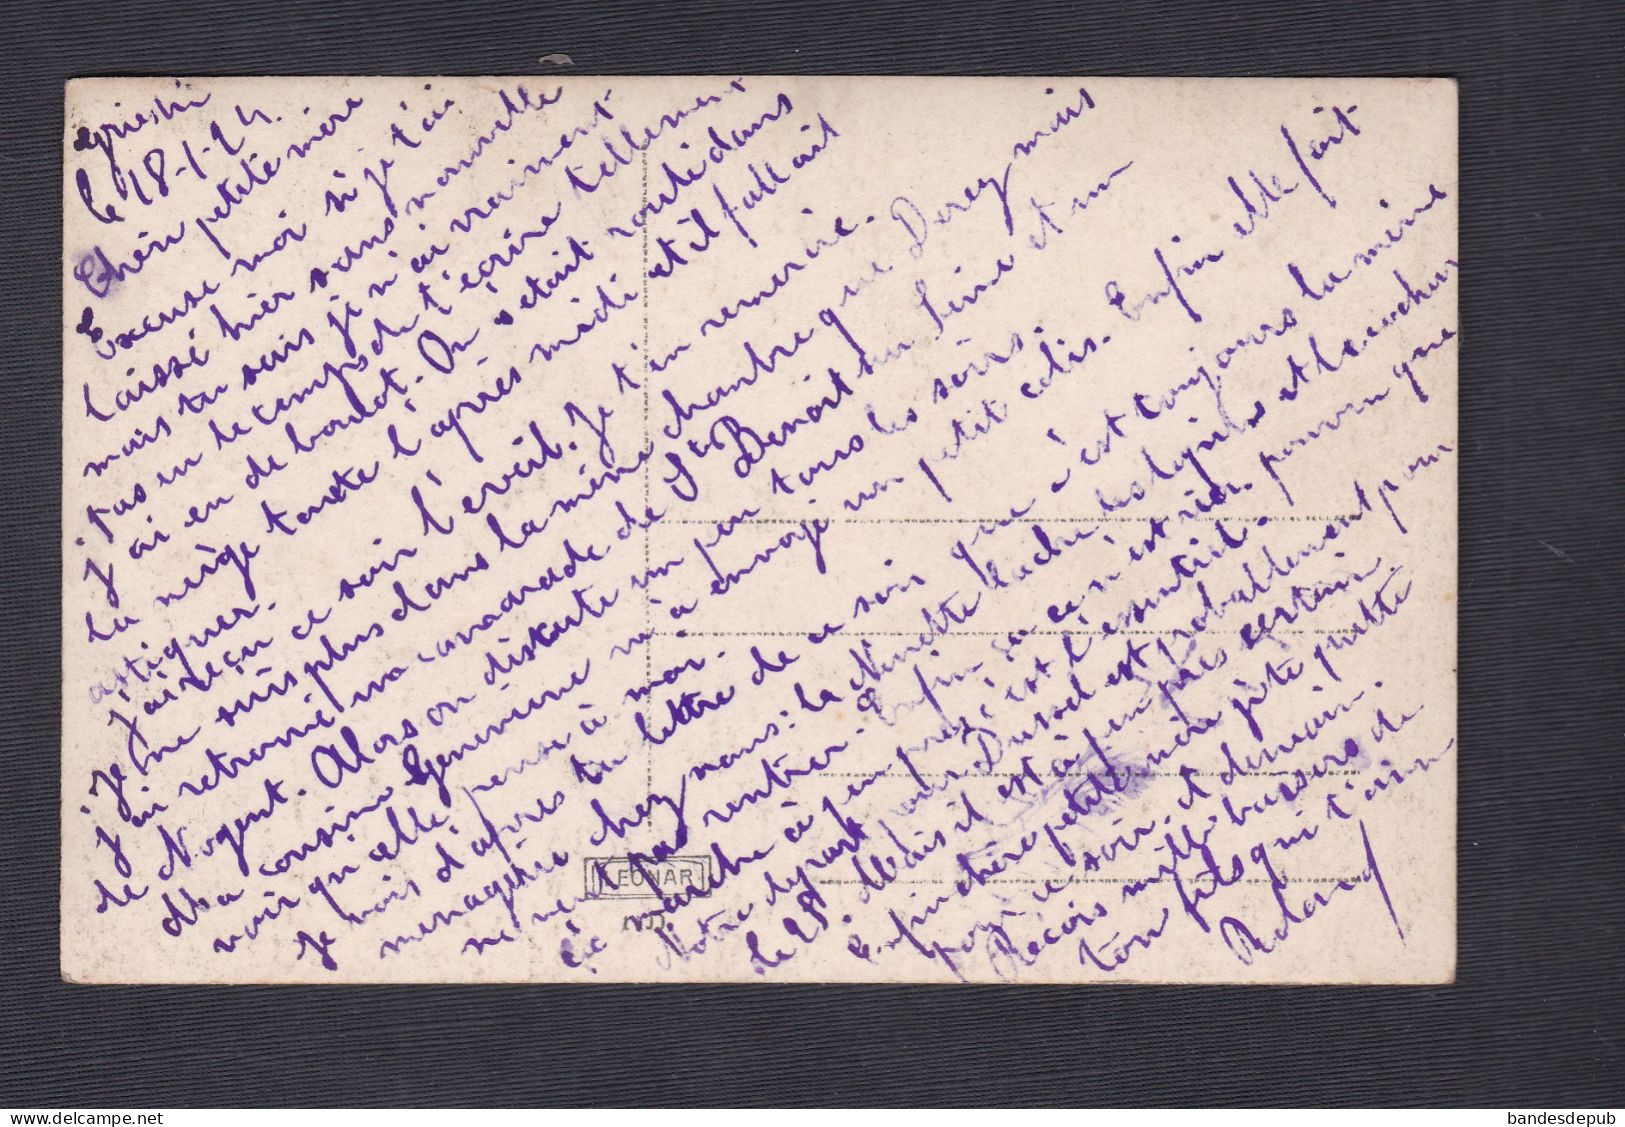 le 18-1-24.
Chéri petite mère
Excuse moi si je t'ai
laissé hier sans nouvelle
mais tu sais je n'ai vraiment
pas eu le temps de t'écrire tellement
j'ai eu de boulot. On s'était roulé dans
la neige toute l'après midi et il fallait
astiquer.
j'ai reçu ce soir l'eveil. Je t'en remercie.
je ne suis plus dans la même chambre que Derey mais
j'ai retrouvé un camarade de St Benoit sur Seine et un
de Nogent. Alors on discute un peu tous les soirs.
Ma cousine Genevieve m'a envoyé un petit colis. Enfin elle fait
voir qu'elle pense à moi.
Je vois d'après ta lettre de ce soir que c'est toujours la même
menagerie chez nous: la Ninette lache les lapins et le cochon
ne veut pas rentrer. Enfin ça ce n'est rien pourvu que
ça marche à peu près c'est l'essentiel.
Notre départ pour Dussel est probablement pour
le 25. Mais il est à peu près certain.
Enfin chère petite mère je te quitte
pour ce soir, et demain.
Reçois mille baisers de
ton fils qui t'aime
Roland
LEONAR
bandesdepub